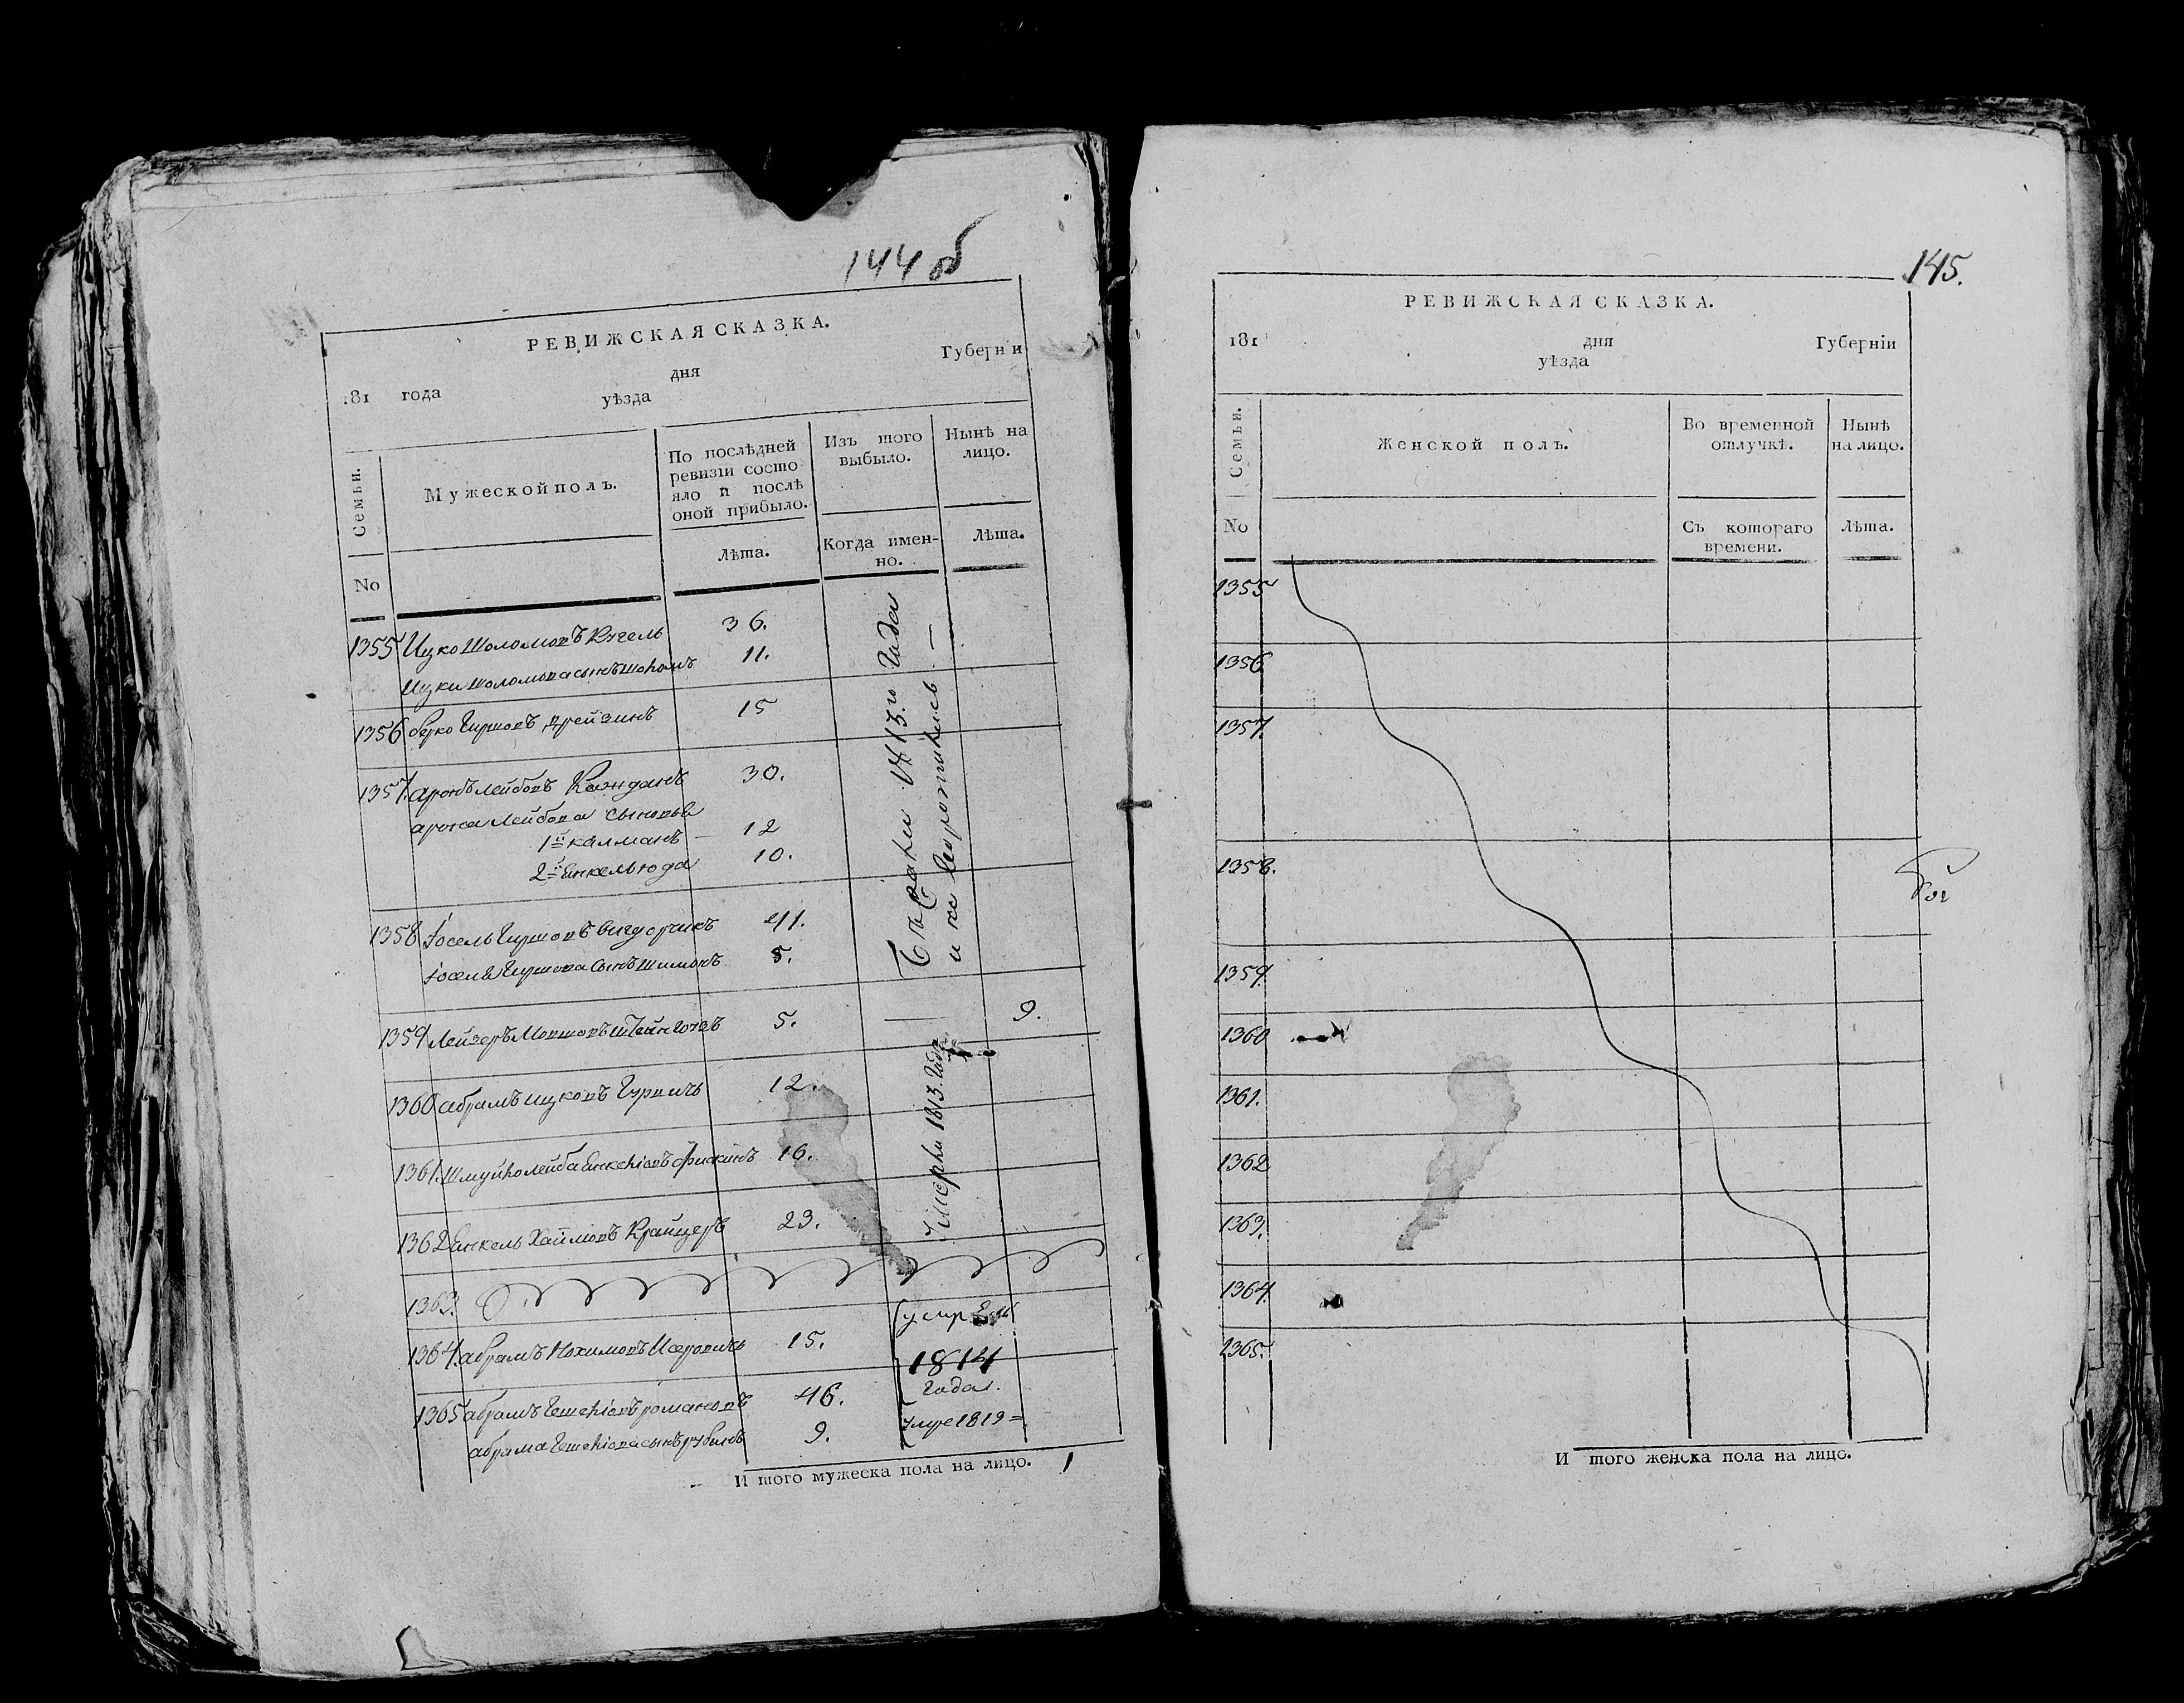 144 об
РЕВИЖСКАЯ СКАЗКА.
181 года дня Губерніи
уѣзда
Семьи.
Мужеской полъ.
По послѣдней ревизіи состояло и послѣ оной прибыло.
Изъ того выбыло.
Нынѣ на лицо.
No
Лѣта.
Когда именно.
Лѣта.
1355 Ицко Шоломовъ Кугель 36.
Ицки Шоломова сынъ 11.
1356 берко Гиршовъ 15
1357. аронъ лейбовъ 30.
арона лейбова сыновья
1й калманъ — 12
2й Енкель юда 10.
1358 Іосель Гиршовъ вигдорчикъ 41.
Іоселя Гиршова сынъ шимонъ 5.
Бъ 1813го года —
и не возротились
1359 Лейзеръ Мовшовъ 5. — 9.
1360 абрамъ ицковъ Гурвичь 12.
1361. Шмуйло лейба Енкеліовъ 16.
1362 Енкель Хаймовъ Крайцеръ 23.
Умерли 1813. года
1363.
1364. абрамъ Нохимовъ Исеровичъ 15.
умр
1814
года.
1365 абрамъ Гешеліовъ романовъ 46.
умре 1819 =
абрама Гешеліова сынъ рубинъ 9.
И того мужеска пола на лицо. 1
145.
РЕВИЖСКАЯ СКАЗКА.
181 дня Губерніи
уѣзда
Семьи.
Женской полъ.
Во временной отлучкѣ.
Нынѣ на лицо.
No
Съ котораго времени.
Лѣта.
1355
1356
1357.
1358.
1359.
1360
1361.
1362
1363.
1364.
1365.
И того женска пола на лицо.